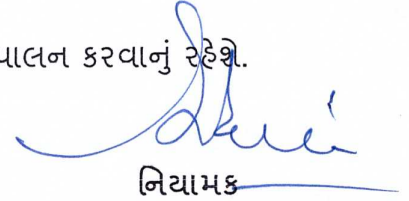 પાલન કરવાનું રહેશે.
નિયામક